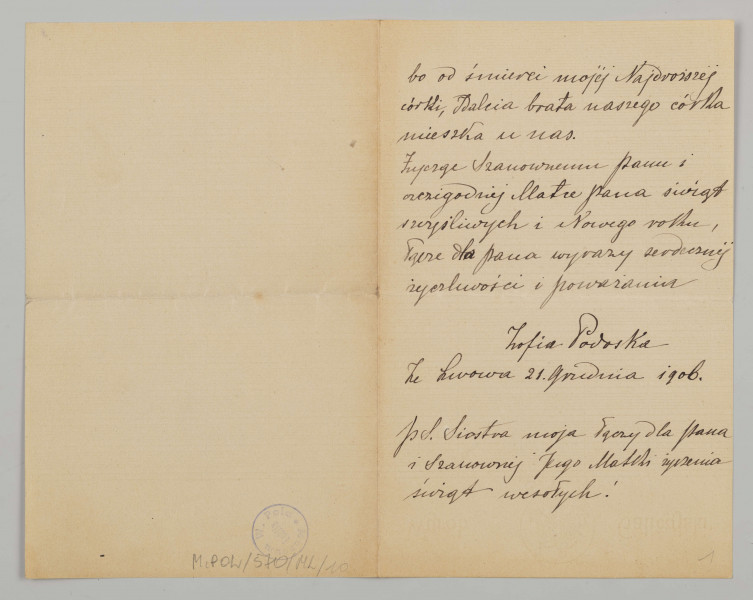 bo od śmierci mojéj Najdroższéj
córki, Balcia brata naszego córka
mieszka u nas.
Życzę Szanownemu panu i
czcigodnéj Matce pana świąt
szczęśliwych i Nowego roku,
łączę dla pana wyrazy serdecznéj
życzliwości i poważania
Zofia Podoska
Ze Lwowa 21. Grudnia 1906.
p.S. Siostra moja łączy dla pana
i szanownéj Jego Matki życzenia
świąt wesołych!
M.POW/570/ML/10
1